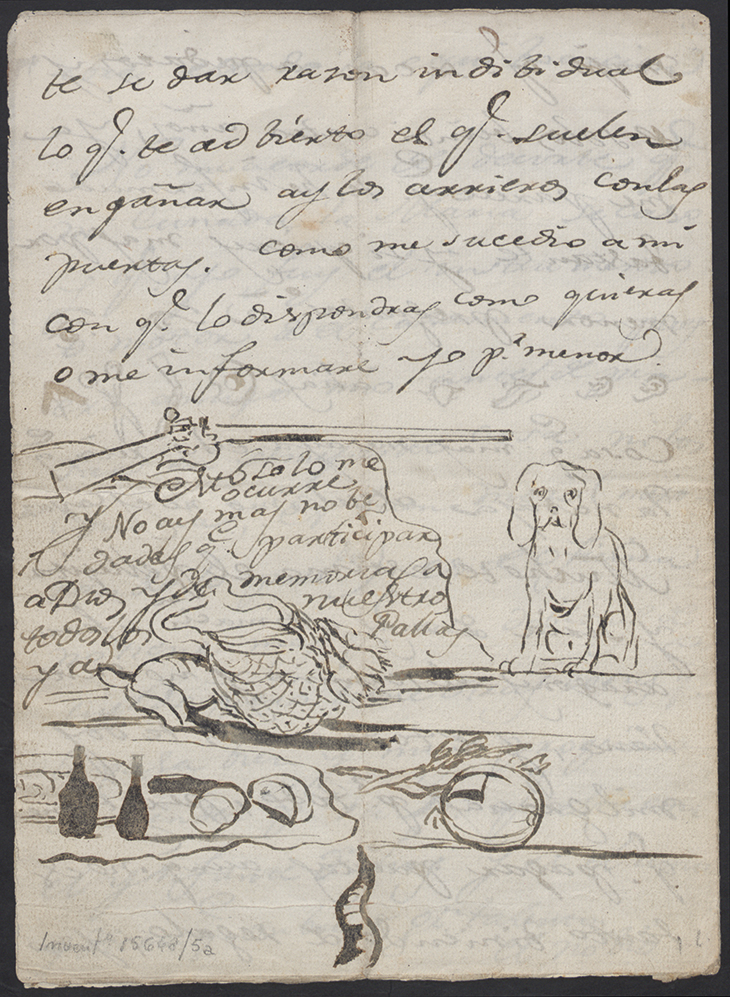 te se dar rason indibidual
lo q.e te adbierto el q.e suelen
engañar ay los arrieros con las
puertas. como me sucedio a mi
con q.e lo dispondras como quieras
o me informare yo p.r menor
No solo lo me
ocurre
y No ay mas nobe
dades q.e participar
a Dios y de memorias a
todos los nuestro
y a Pallas
Invent.o 15648/5a